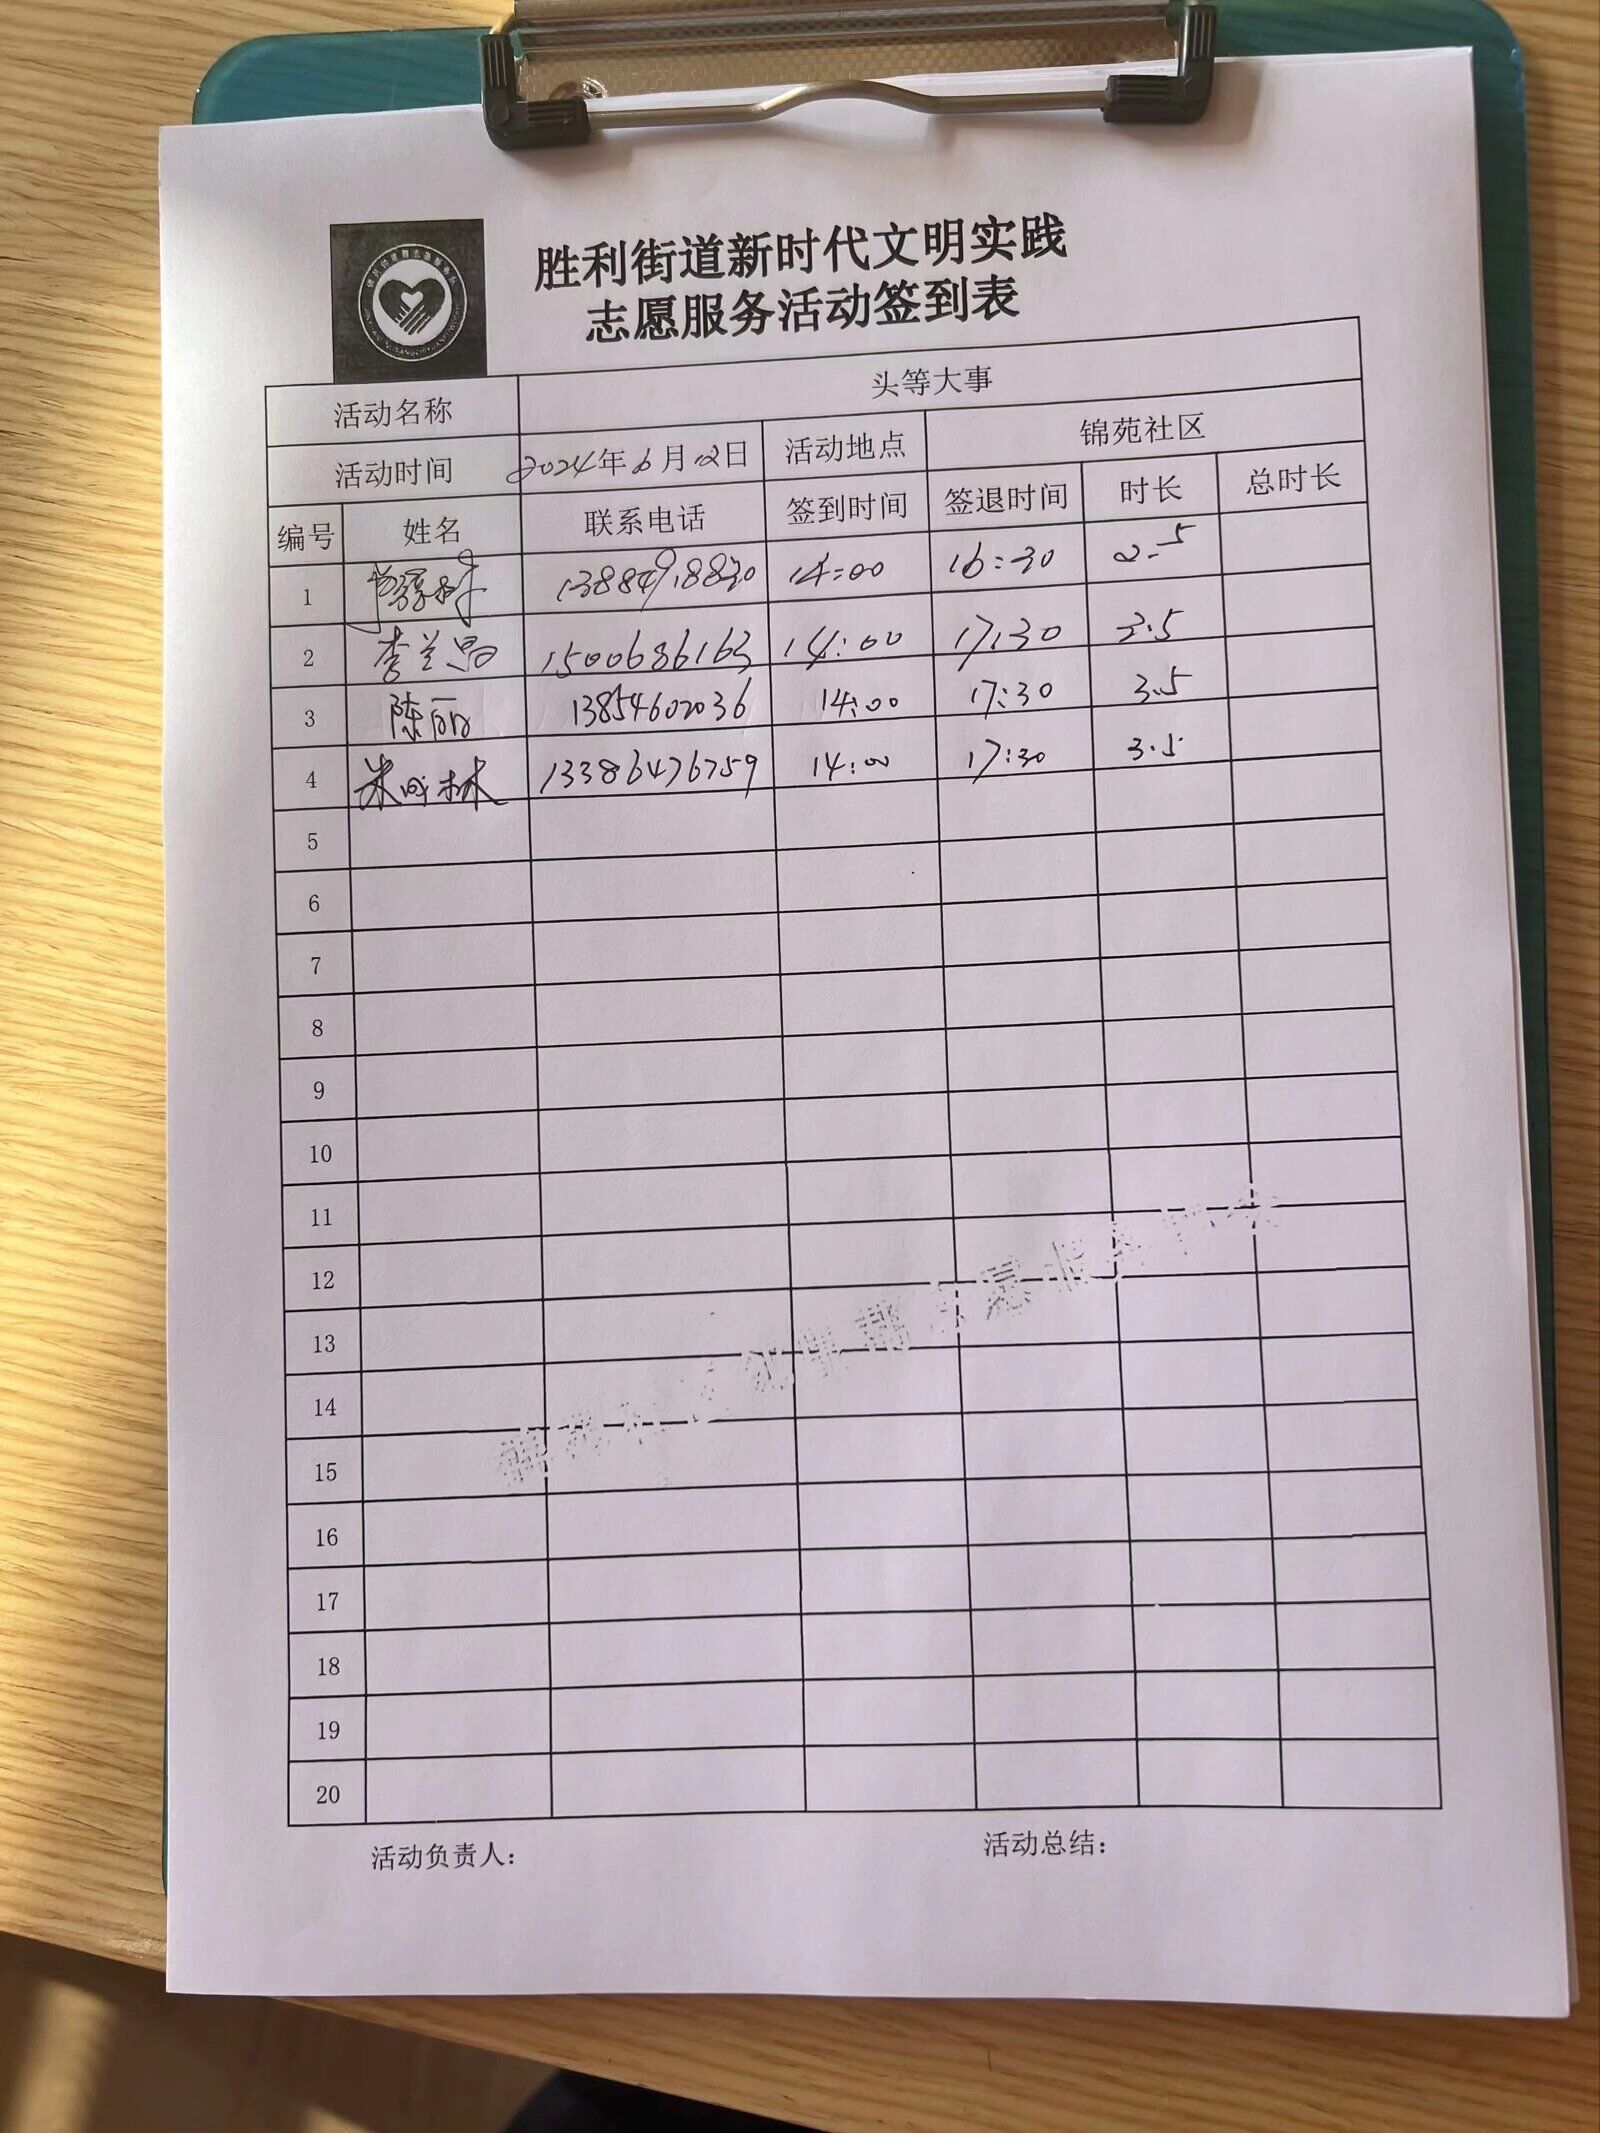 胜利街道新时代文明实践
志愿服务活动签到表
活动名称 头等大事
活动时间 2024年6月12日 活动地点 锦苑社区
编号 姓名 联系电话 签到时间 签退时间 时长 总时长
1 14:00 16:30 2.5
2 李兰 1500686163 14:00 17:30 3.5
3 陈丽 13854602036 14:00 17:30 3.5
4 林 13386476759 14:00 17:30 3.5
5
6
7
8
9
10
11
12
13
14
15
16
17
18
19
20
活动负责人: 活动总结: